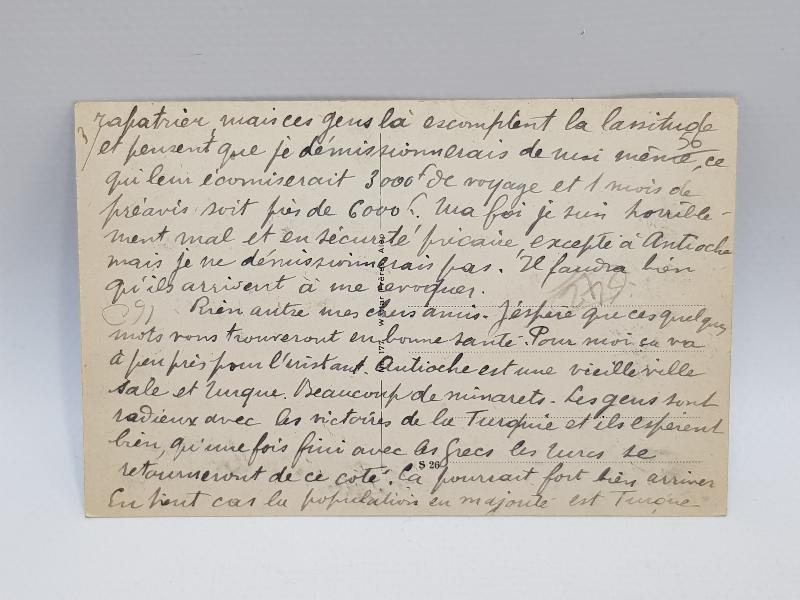 3/
rapatrier, mais ces gens là escomptent la lassitude
et pensent que je démissionnerais de moi même, ce
qui leur écomiserait 3000f de voyage et 1 mois de
préavis soit près de 6000f. Ma foi je suis horrible-
ment mal et en sécurité précaire, excepté à Antioche
mais je ne démissionnerais pas. Il faudra bien
qu'ils arrivent à me revoquer.
Rien autre mes chers amis. J'espère que ces quelques
mots vous trouveront en bonne santé. Pour moi ça va
à peu près pour l'instant. Antioche est une vieille ville
sale et Turque. Beaucoup de minarets. Les gens sont
radieux avec les victoires de la Turquie et ils espèrent
bien, qu'une fois fini avec les Grecs les Turcs se
retourneront de ce coté. Ca pourrait fort bien arriver
En tout cas la population en majorité est Turque
S 26